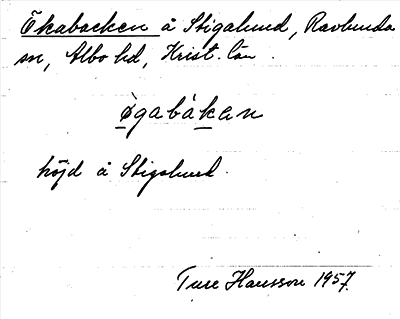 Ökabacken å Stigalund, Ravlunda
sn, Albo hd, Krist. län.
øgabàkan
höjd å Stigalund.
Ture Hansson 1957.